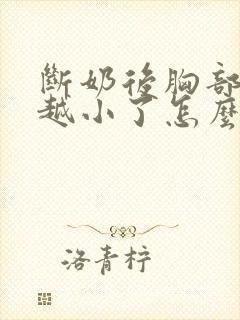 斷奶後胸部
越小了怎麼
洛青梓